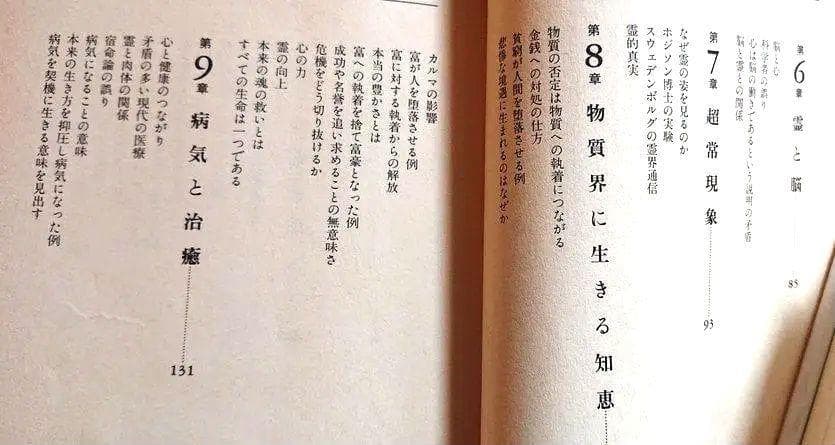 第6章 霊と脳……85
脳と心
科学者の誤り
心は脳の働きであるという説明の矛盾
脳と霊との関係
第7章 超常現象……93
なぜ霊の姿を見るのか
ホジソン博士の実験
スウェデンボルグの霊界通信
霊的真実
第8章 物質界に生きる知恵……
物質の否定は物質への執着につながる
金銭への対処の仕方
貧窮が人間を堕落させる例
悲惨な境遇に生まれるのはなぜか
カルマの影響
富が人を堕落させる例
富に対する執着からの解放
本当の豊かさとは
富への執着を捨て富豪となった例
成功や名誉を追い求めることの無意味さ
危機をどう切り抜けるか
心の力
霊の向上
本来の魂の救いとは
すべての生命は一つである
第9章 病気と治癒……131
心と健康のつながり
矛盾の多い現代の医療
霊と肉体の関係
宿命論の誤り
病気になることの意味
本来の生き方を抑圧し病気になった例
病気を契機に生きる意味を見出す